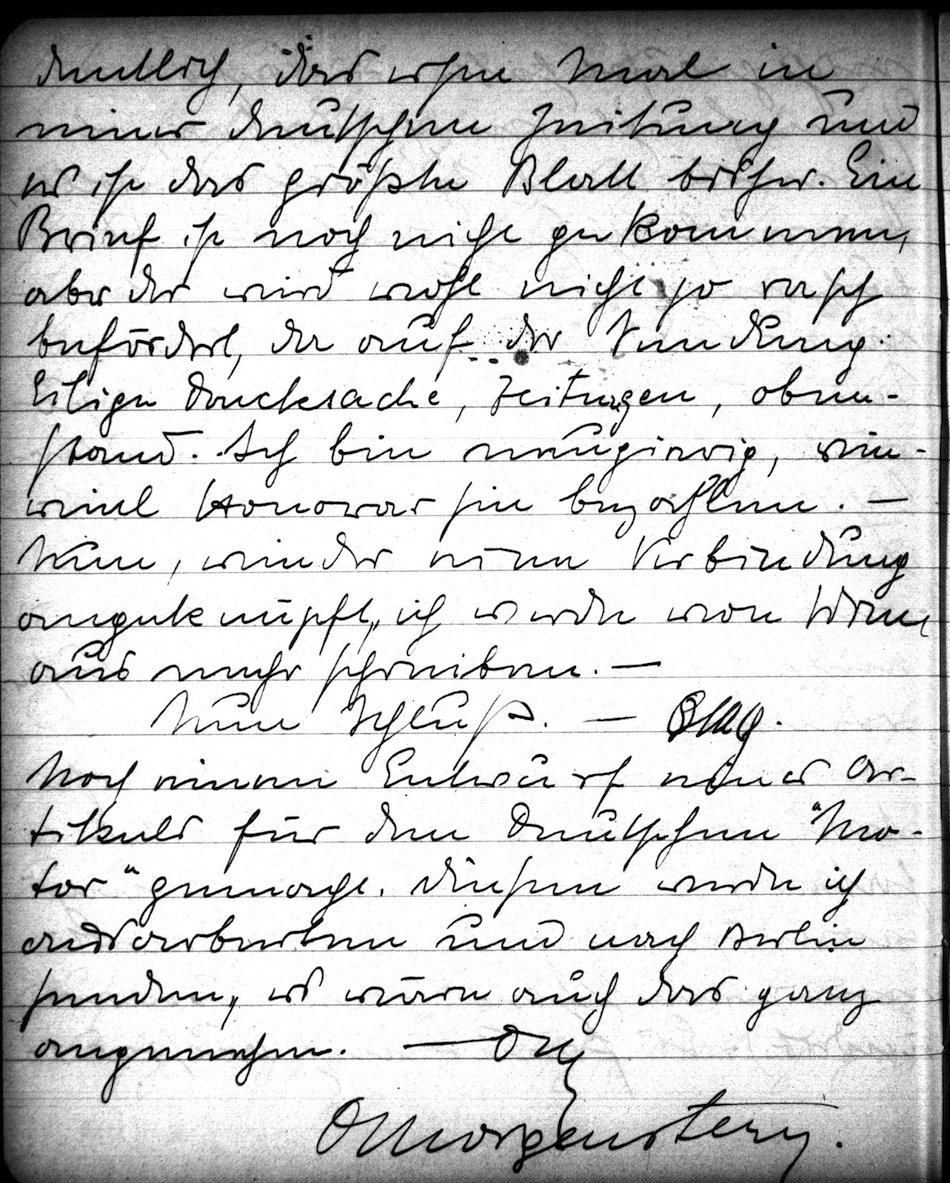 deutlich, das erste Mal in
einer deutschen Zeitung und
es ist das größte Blatt bisher. Ein
Brief ist noch nicht gekommen,
aber der wird wohl nicht so rasch
befördert, da auf der Sendung:
Eilige Drucksache, Zeitungen, oben-
stand. Ich bin neugierig, wie-
viel Honorar sie bezahlen. —
Nun, wieder eine Verbindung
angeknüpft, ich werde von Wien
aus mehr schreiben. —
Nun Schluß. —
Noch einen Entwurf eines Ar-
tikels für den Deutschen "Mo-
tor" gemacht. Diesen werde ich
ausarbeiten und nach Berlin
senden, es wäre auch das ganz
angenehm. —
OMorgenstern.